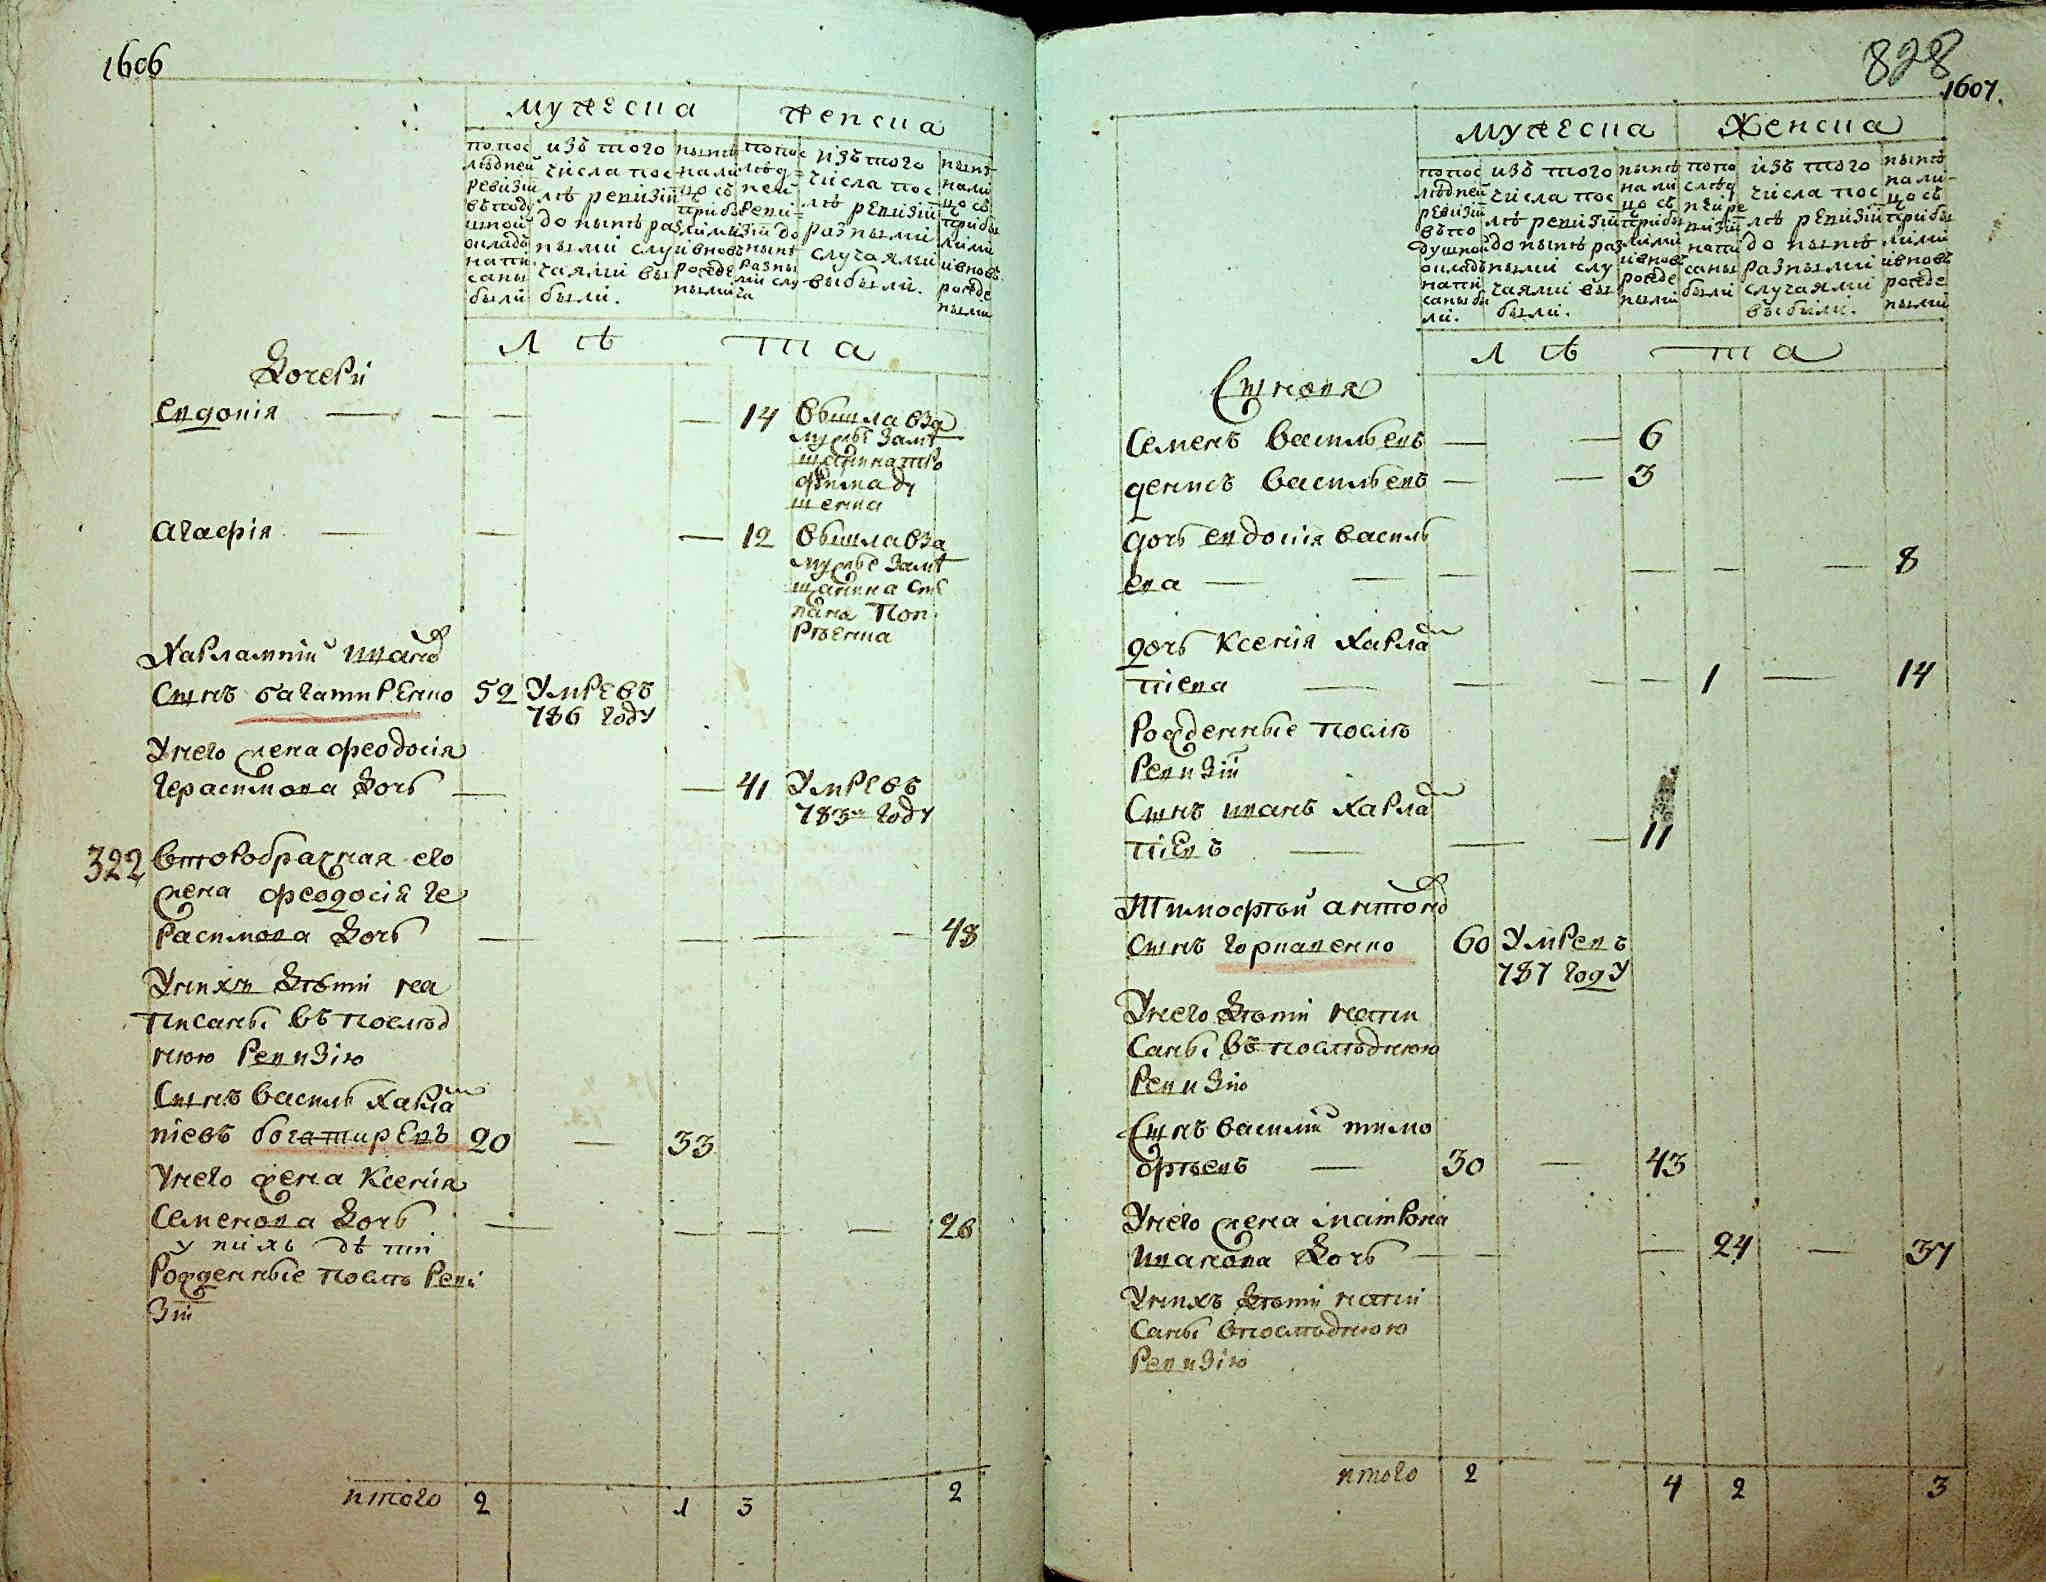 1606
мужеска женска
по пос
людней
ревизии
въ поду
шной
окладъ
напи
саны
были
изъ того
числа пос
лѣ ревизіи
до нынѣ раз
ными слу
чаями вы
были.
нынѣ
нали
цо съ
прибы
лыми
и вновь
рожде
ными
по пос
лѣд
ней
реви
зіи до
нынѣ
разны
ми слу
ча
изъ того
числа пос
лѣ ревизіи
разными
случаями
выбыли.
нынѣ
нали
цо съ
прибы
лыми
и вновь
рожде
ными
лѣ та
Дочери
Евдокія — — — — 14 вышла вза
мужъе за мѣ
щанина тро
фима ду
шенка
Агафія — — — 12 вышла вза
мужъе за мѣ
щанина сте
пана поп
рѣенка
Харлампій Ивановъ
Сынъ багатиренко 52 Умревъ
786 году
У него жена феодосія
герасимова дочь — — 41 Умревъ
783м году
322 Второбрачная его
жена феодосія ге
расимова дочь — — — — 48
У них дѣти на
писаны въ послѣд
нюю ревизію
Сынъ василь харла
піевъ богатиревъ 20 — 33
У него жена Ксенія
семенова дочь — — — — 26
у нихъ дѣти
рожденные послѣ реви
зіи
итого 2 1 3 2
828
1607.
мужеска женска
по пос
людней
ревизіи
въ по
душной
окладъ
напи
саны бы
ли.
изъ того
числа пос
лѣ ревизіи
до нынѣ раз
ными слу
чаями вы
были.
нынѣ
нали
цо съ
прибы
лыми
и вновь
рожде
ными
по по
слѣд
ней ре
визіи
напи
саны
были
изъ того
числа пос
лѣ ревизіи
до нынѣ
разными
случаями
выбыли.
нынѣ
нали
цо съ
прибы
лыми
и вновь
рожде
ными
лѣ та
Сыновя
Семенъ васильевъ — — 6
денисъ васильевъ — — 3
дочь евдокія василь
ева — — — — — — 8
дочь Ксенія харлам
піева — — — — 1 — 14
рожденные послѣ
ревизіи
Сынъ иванъ харлам
піевъ — — — 11
Тимофѣй антоновъ
Сынъ горкавенко 60 Умревъ
787 году
У него дѣти напи
саны въ послѣднюю
ревизію
Сынъ василий тимо
фѣевъ — 30 — 43
У него жена матрона
иванова дочь — — — 24 — 37
У нихъ дѣти напи
саны в послѣднюю
ревизію
итого 2 4 2 3